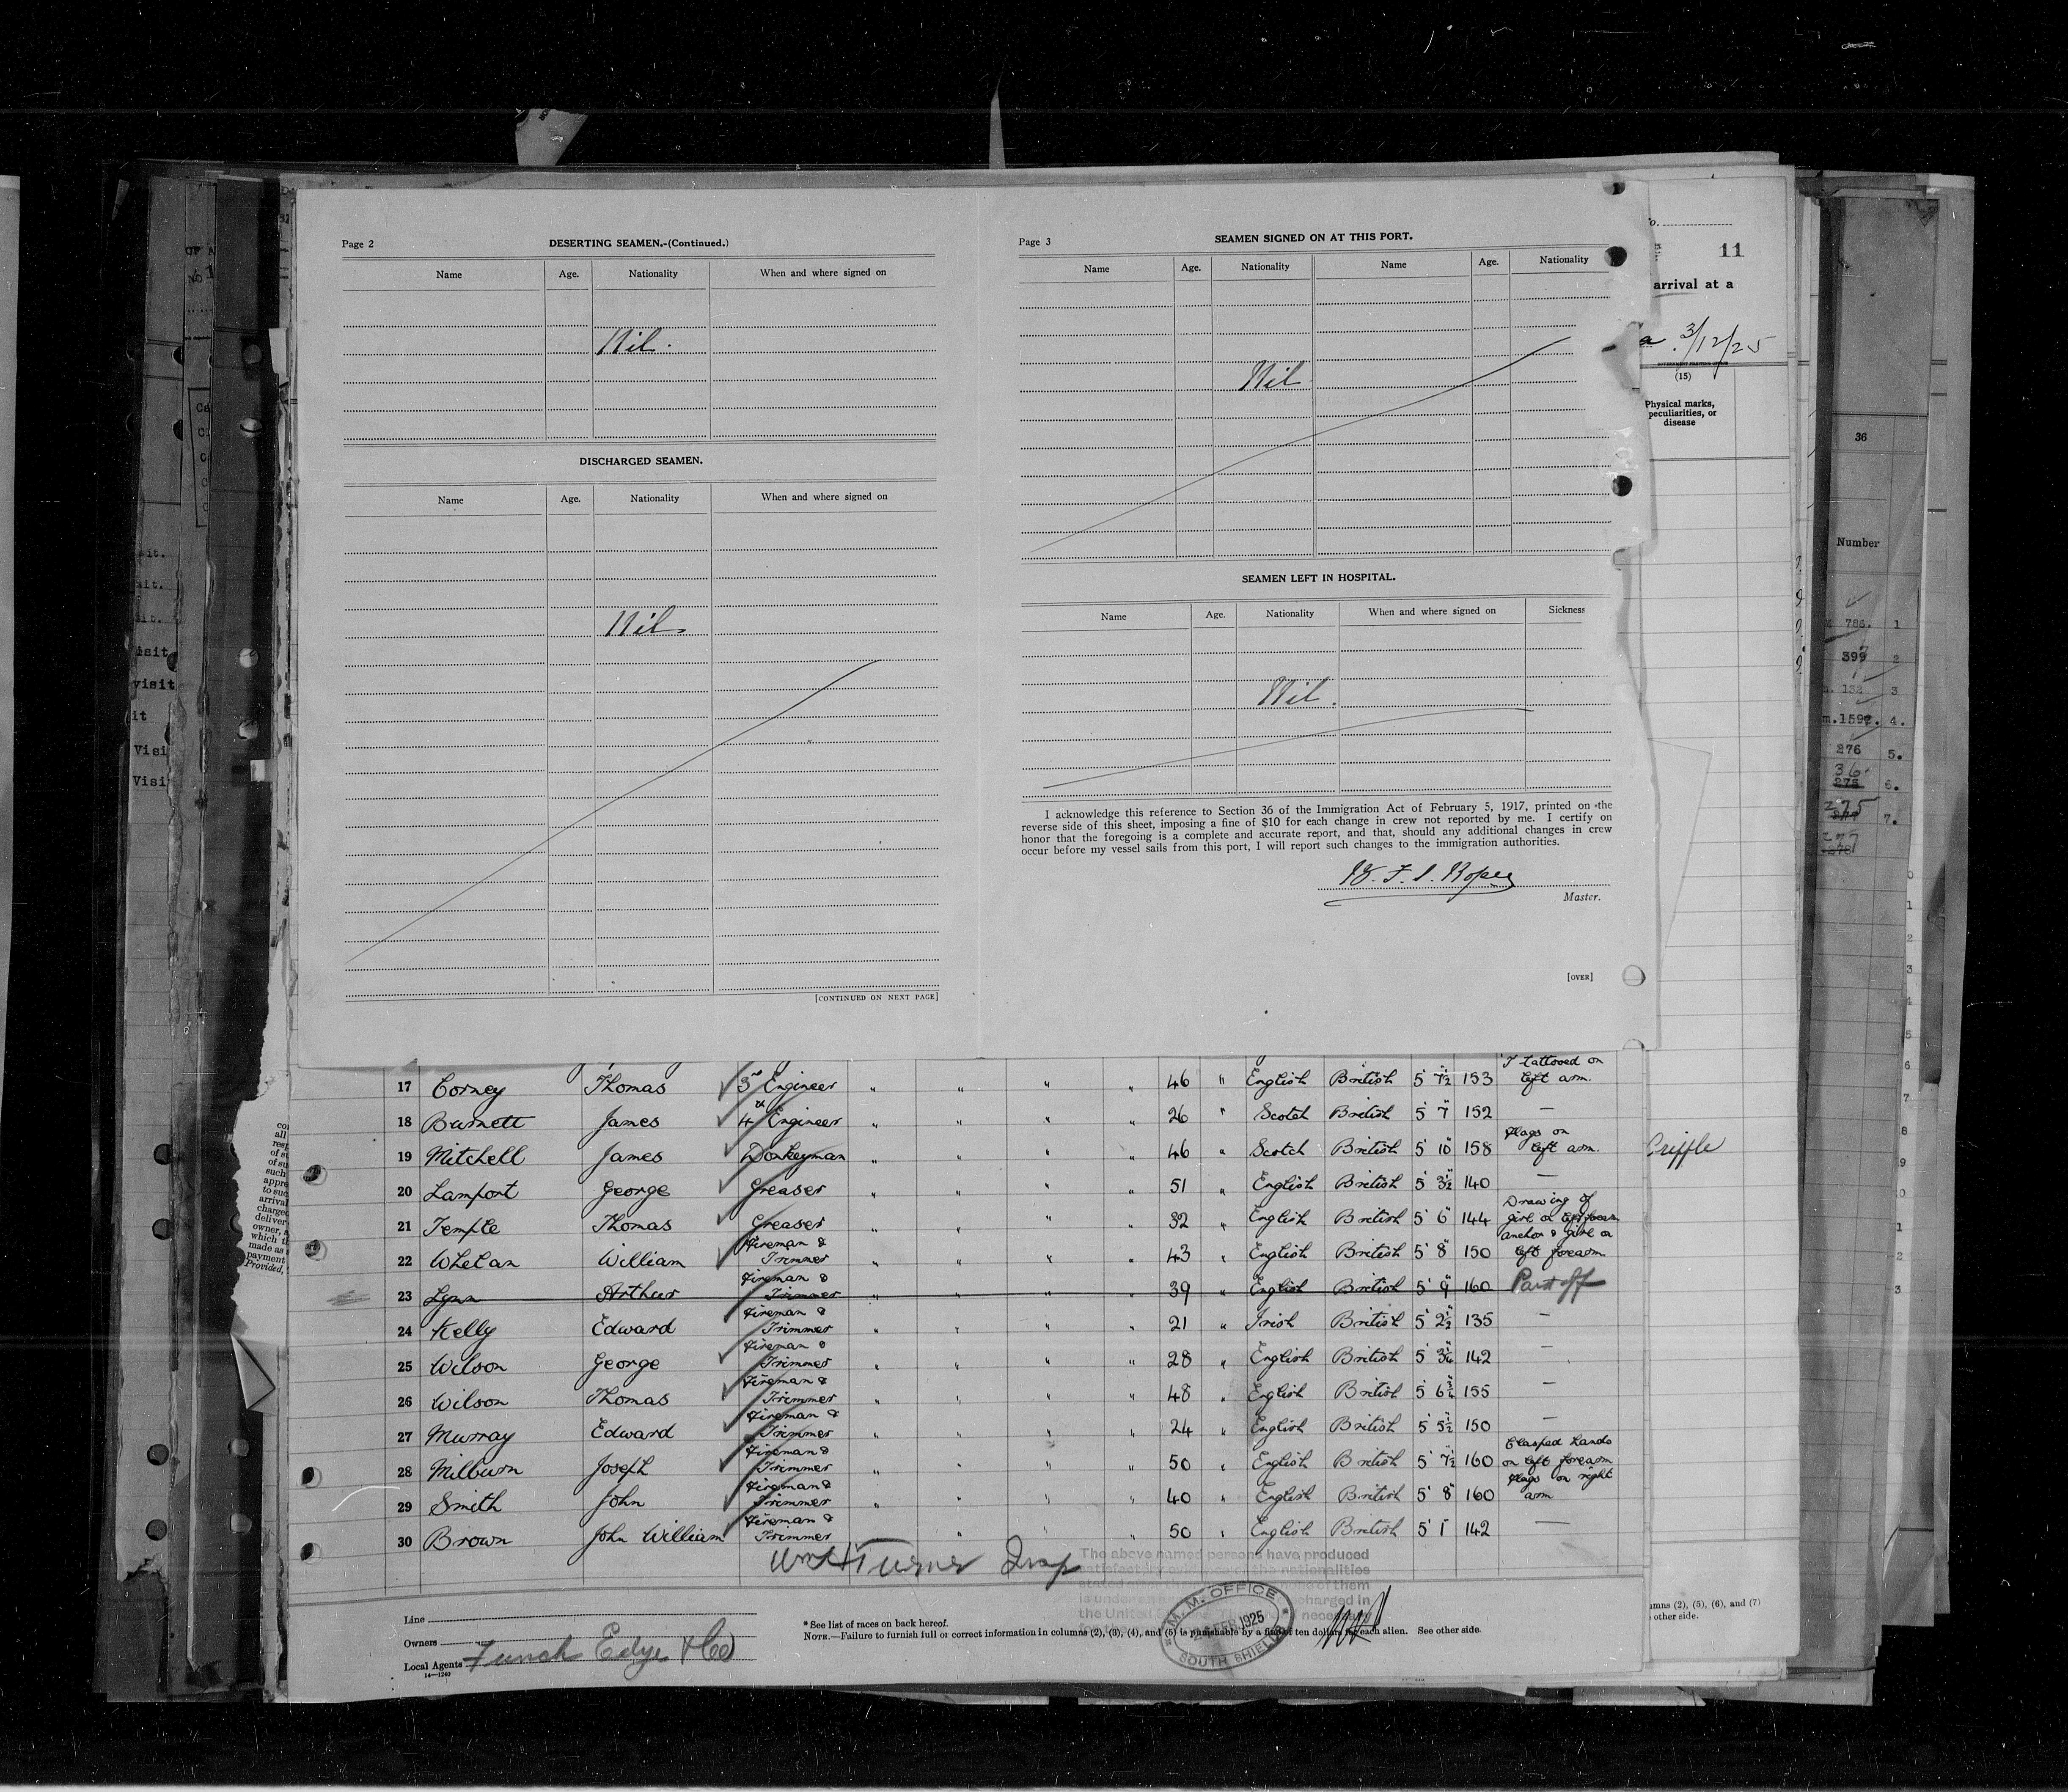 Page 2
DESERTING SEAMEN.-(Continued.)
Name Age. Nationality When and where signed on
Nil.
DISCHARGED SEAMEN.
Name Age. Nationality When and where signed on
Nil.
[CONTINUED ON NEXT PAGE]
Page 3
SEAMEN SIGNED ON AT THIS PORT.
Name Age. Nationality Name Age. Nationality
Nil
SEAMEN LEFT IN HOSPITAL.
Name Age. Nationality When and where signed on Sickness
Nil.
I acknowledge this reference to Section 36 of the Immigration Act of February 5, 1917, printed on the
reverse side of this sheet, imposing a fine of $10 for each change in crew not reported by me. I certify on
honor that the foregoing is a complete and accurate report, and that, should any additional changes in crew
occur before my vessel sails from this port, I will report such changes to the immigration authorities.
Master.
[OVER]
11
arrival at a
3/12/25
(15)
Physical marks,
peculiarities, or
disease
36
Number
786. 1
399 2
132 3
m.1592. 4.
276 5.
36
6.
275 7.
277
tattooed on
17 Corney Thomas 3rd Engineer " " " " 46 " English British 5' 7½" 153 left arm.
18 Burnett James 4th Engineer " " " " 26 " Scotch British 5' 7" 152 —
flags on
19 Mitchell James Donkeyman " " " " 46 " Scotch British 5' 10" 158 left arm. Criffle
20 Lamport George Greaser " " " " 51 " English British 5' 3½" 140 —
Drawing of
21 Temple Thomas Greaser " " " " 32 " English British 5' 6" 144 girl on
Fireman & anchor & girl on
22 Whelan William Trimmer " " " " 43 " English British 5' 8" 150 left forearm
Fireman &
23 Lynn Arthur Trimmer " " " " 39 " English British 5' 9" 160 Paid off
Fireman &
24 Kelly Edward Trimmer " " " " 21 " Irish British 5' 2½" 135 —
Fireman &
25 Wilson George Trimmer " " " " 28 " English British 5' 3¼" 142 —
Fireman &
26 Wilson Thomas Trimmer " " " " 48 " English British 5' 6¾" 155 —
Fireman &
27 Murray Edward Trimmer " " " " 24 " English British 5' 5½" 150 —
Fireman & Clasped hands
28 Milburn Joseph Trimmer " " " " 50 " English British 5' 7½" 160 on left forearm
Fireman & flags on right
29 Smith John Trimmer " " " " 40 " English British 5' 8" 160 arm
Fireman &
30 Brown John William Trimmer " " " " 50 " English British 5' 1" 142 —
Wm H Turner Insp
The above named persons have produced
Line
Owners
Local Agents Funch Edye & Co
14—1240
* See list of races on back hereof.
NOTE.—Failure to furnish full or correct information in columns (2), (3), (4), and (5) is punishable by a fine of ten dollars for each alien. See other side.
M. M. OFFICE
FEB 1925
SOUTH SHIELDS
umns (2), (5), (6), and (7)
other side.